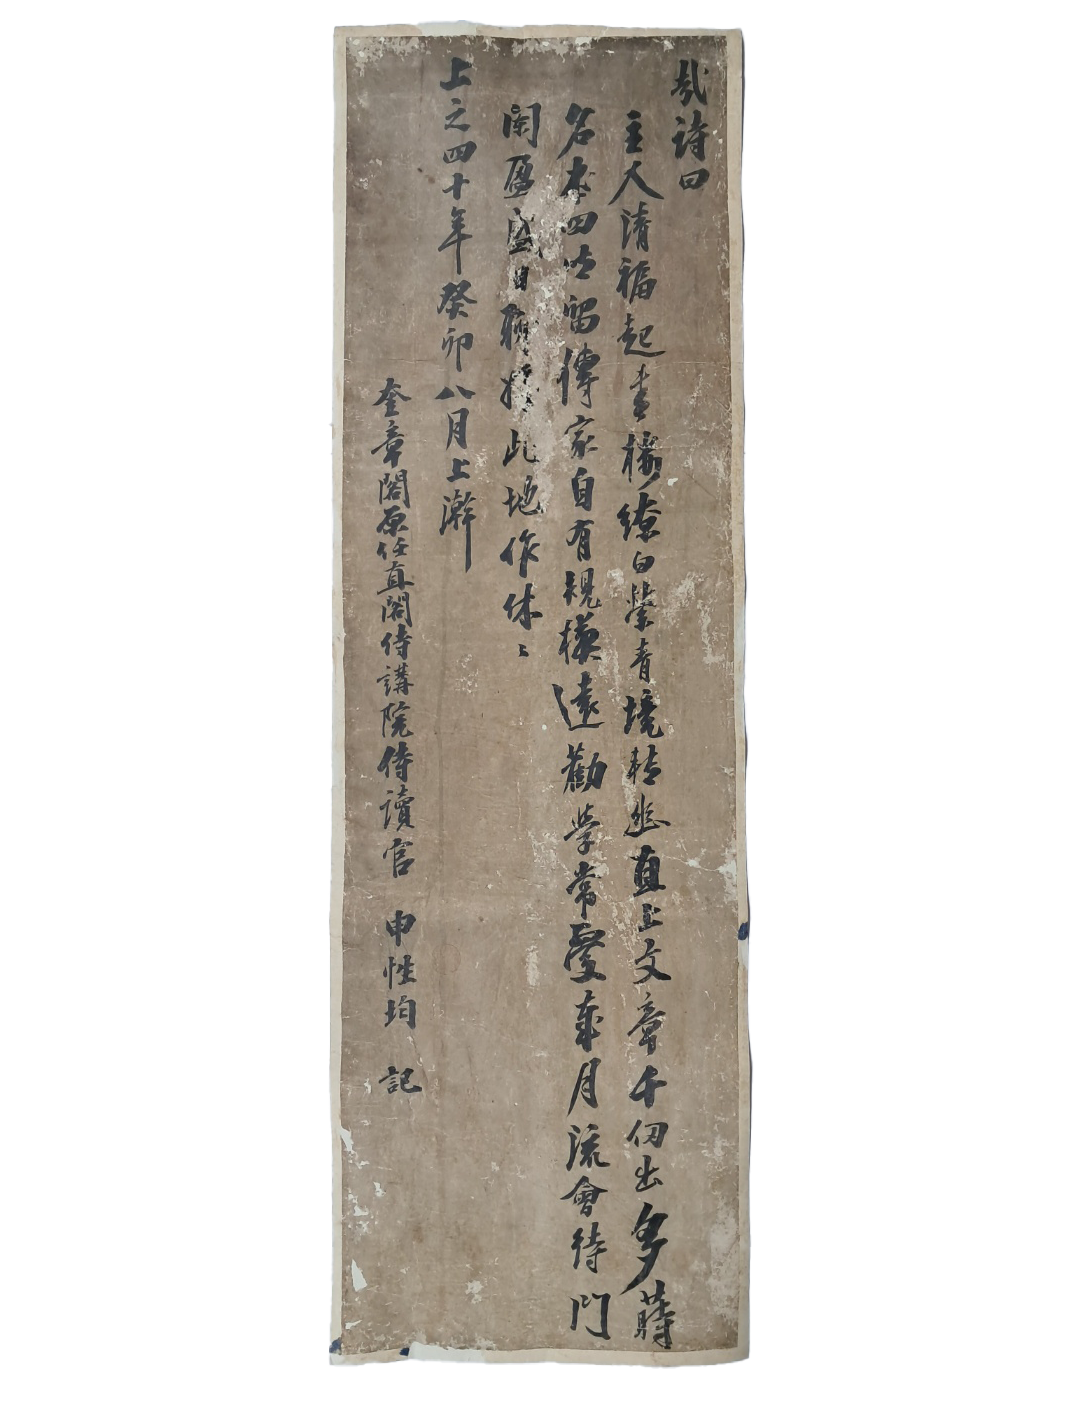 哉詩曰
主人清福起書樓繚白縈青境轉幽直上文章千仞出多蒔
名本四时留傳家自有規模遠勸學常愛歲月流會待門
闌盈盛日聊將此地作休〻
上之四十年癸卯八月上澣
奎章閣原任直閣侍講院侍讀官 申性均 記